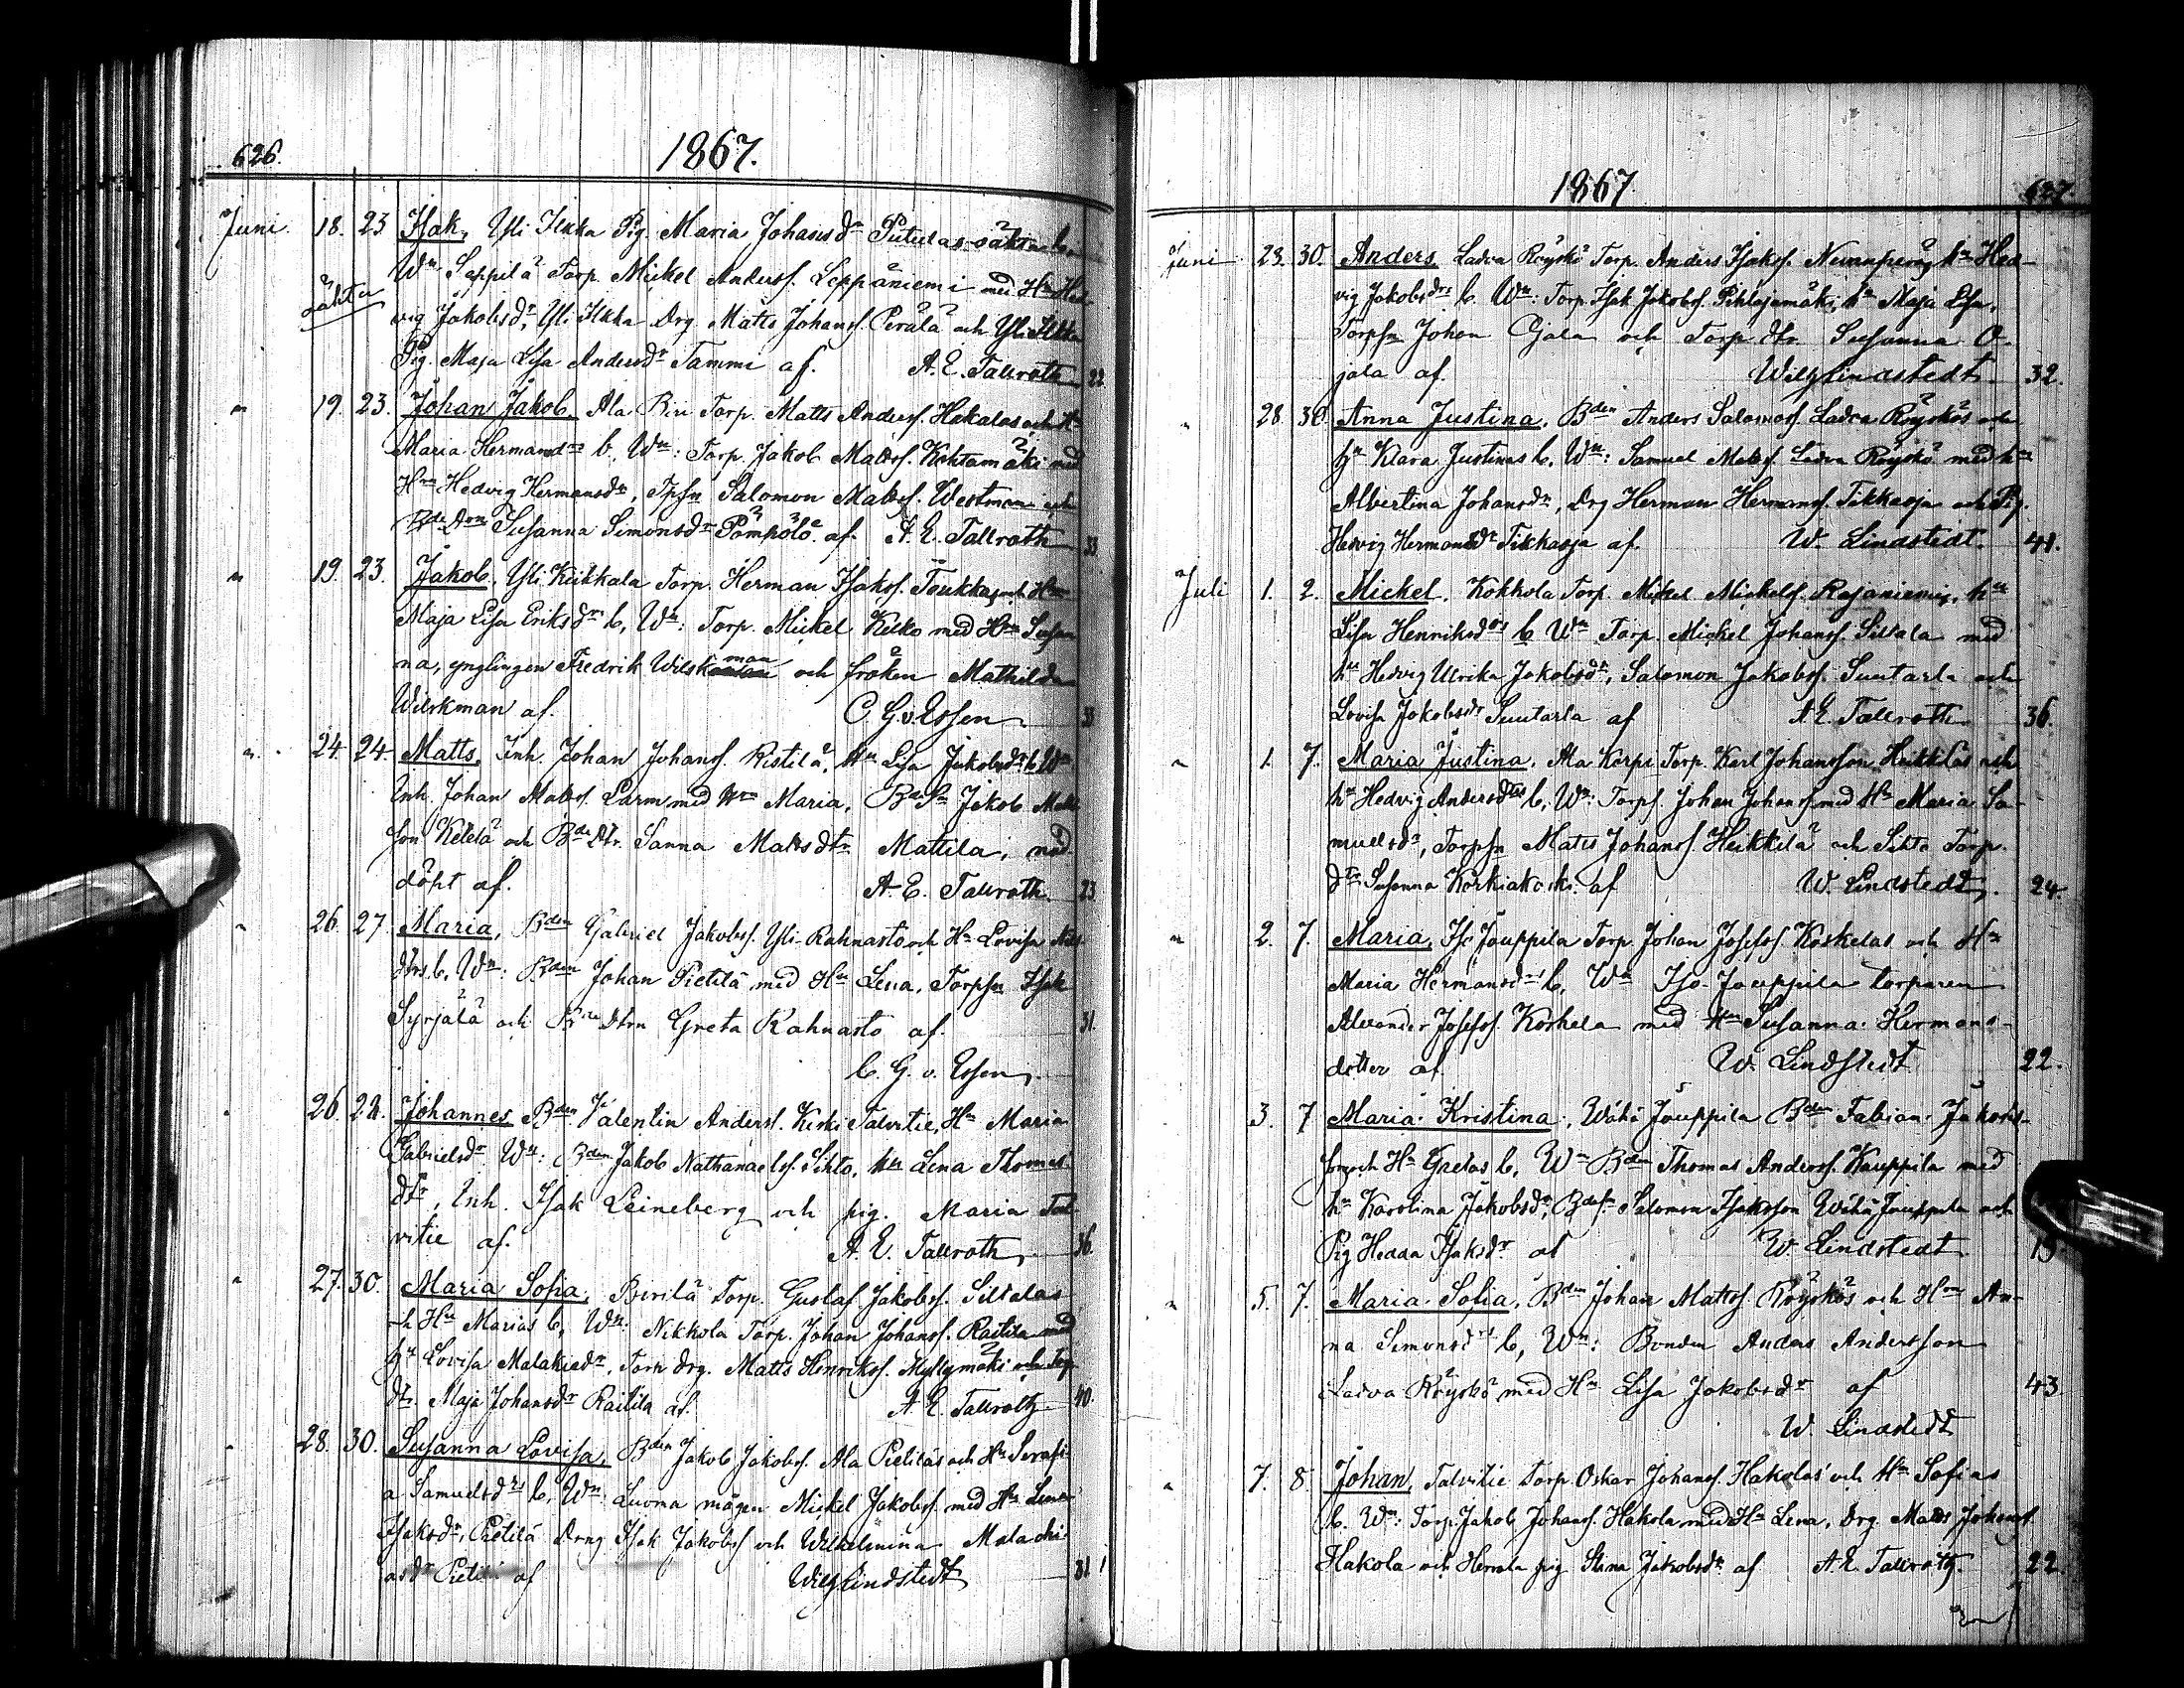 626. 1867.
Juni. 18. 23 Isak, Yli Ilkka Pig. Maria Johansdr Putulas oäkta b,
oäkta Wn. Seppilä Torp. Mickel Andersf. Leppäniemi med Hu Hed-
vig Jakobsdr, Yli Ilkka Drg. Matts Johansf. Perälä och Yli Ilkka
Pig. Maja Lisa Andersdr Tammi af. A. E. Tallroth 22
" 19. 23. Johan Jakob, Ala Biri Torp. Matts Andersf. Hakalas och Hu
Maria Hermansdrs b, Wn: Torp. Jakob Mattsf. Kohtamäki med
Hru Hedvig Hermansdr, Tpsn Salomon Mattsf. Westman och
Bde Drn Susanna Simonsdr Pömpölö af. A. E. Tallroth 33
" 19. 23. Jakob, Yli Keikkala Torp. Herman Isaksf. Toukkas och Hru
Maja Lisa Eriksdrs b, Wn: Torp. Mickel Kelko med Hru Susan
na, ynglingen Fredrik Wilskman och fröken Mathilda
Wilskman af. C. G. v. Essen 33
" 24. 24. Matts, Inh. Johan Johansf. Ristilä, Hu Lisa Jakobsdr b, Wn
Inh. Johan Mattsf. Larm med Hru Maria, Bde Sn Jakob Matts
son Ketelä och Bde Dtr. Sanna Mattsdtr Mattila, nöd
döpt af. A. E. Tallroth. 23
" 26. 27. Maria, Bden Gabriel Jakobsf. Yli-Rahnasto och Hu Lovisa Nils
dtrs b, Wn: Bden Johan Pietilä med Hu Lena, Torpsn Isak
Syrjälä och Bde Dtrn Greta Rahnasto af. 31.
C. G. v. Essen.
" 26. 28. Johannes Bden Valentin Andersf. Kirki Talvitie, Hu Maria
Gabrielsdr Wn: Bden Jakob Nathanaelsf. Sihto, Hu Lena Thomas
dtr, Inh. Isak Leineberg och pig. Maria Tal-
vitie af. A. E. Tallroth 36.
" 27. 30. Maria Sofia, Birilä Torp. Gustaf Jakobsf. Siltalas
ch Hu Marias b, Wn: Nikkola Torp. Johan Johansf. Raitila med
Hu Lovisa Malakiedr, Torp drg. Matts Henriksf. Myllymäki och Torp
dtr. Maja Johansdr Raitila af. A. E. Tallroth 40.
" 28. 30. Susanna Lovisa, Bden Jakob Jakobsf. Ala Pietiläs och Hu Serafi-
a Samuelsdrs b, Wn Luoma mågen Mickel Jakobsf. med Hu Lena
Isaksdr, Pietilä Dreng Isak Jakobsf och Wilhelmina Malachi-
asdr af Wilh Lindstedt 31
1867 627.
Juni 23. 30. Anders Ladva Röyskö Torp. Anders Isaksf. hu Hed-
vig Jakobsdrs b. Wn: Torp. Isak Jakobsf. Pihlajamäki, hu Maja Lisa,
Torpsn Johan Ojala och Torp. dtr. Susanna O-
jala af. Wilh Lindstedt 32.
" 28. 30. Anna Justina, Bden Anders Salomosf. Ladva Röyskös och
hu Klara Justinas b, Wn: Samuel Mattsf. Ladva Röyskö med hu
Albertina Johansdr, Drg Herman Hermansf. Tikkaoja och Pig.
Hedvig Hermansdr Tikkaoja af. W. Lindstedt. 41.
Juli 1. 2. Mickel. Kokkola Torp. Mickel Mickelsf. Rajaniemis, hu
Lisa Henriksdrs b Wn Torp. Mickel Johansf. Siltala med
hu Hedvig Ulrika Jakobsdr, Salomon Jakobsf. Suutarla och
Lovisa Jakobsdr Suutarla af A. E. Tallroth 36.
" 1. 7. Maria Justina. Ala Korpi Torp. Karl Johansson Heikkilas och
hu Hedvig Andersdtrs b, Wn: Torpf. Johan Johansf. med Hu Maria Sa-
muelsdr, Torpsn Matts Johansf. Heikkilä och Sihto Torp.
dtr Susanna Korkiakoski af W. Lindstedt. 24.
" 2. 7. Maria, Iso Jouppila Torp. Johan Josefsf. Koskelas och Hu
Maria Hermansdrs b, Wn Iso-Jouppila torparen
Alexander Josefsf. Koskela med Hu Susanna Hermans-
dotter af. W. Lindstedt 22.
3. 7 Maria Kristina, Wähä Jouppila Bden Fabian Jakobs-
son och Hu Gretas b, Wn Bden Thomas Andersf. Kauppila med
hu Karolina Jakobsdr, Bdesn Salomon Isaksson Wähä Jouppila och
Pig Hedda Isaksdr af W. Lindstedt
" 5. 7. Maria Sofia, Bden Johan Mattsf. Röyskös och Hru An-
na Simonsdrs b, Wn: Bonden Anders Andersson
Ladva Röyskö med Hu Lisa Jakobsdr af 43
W. Lindstedt
" 7. 8 Johan, Talvitie Torp. Oskar Johansf. Hakolas och Hu Sofias
b. Wn: Torp. Jakob Johansf. Hakola med Hu Lena, Drg. Matts Johansf.
Hakola och Herrala pig Stina Jakobsdr af A. E. Tallroth. 22